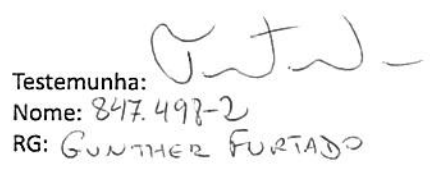 Testemunha:
Nome: 847.498-2
RG: GUNTHER FURTADO